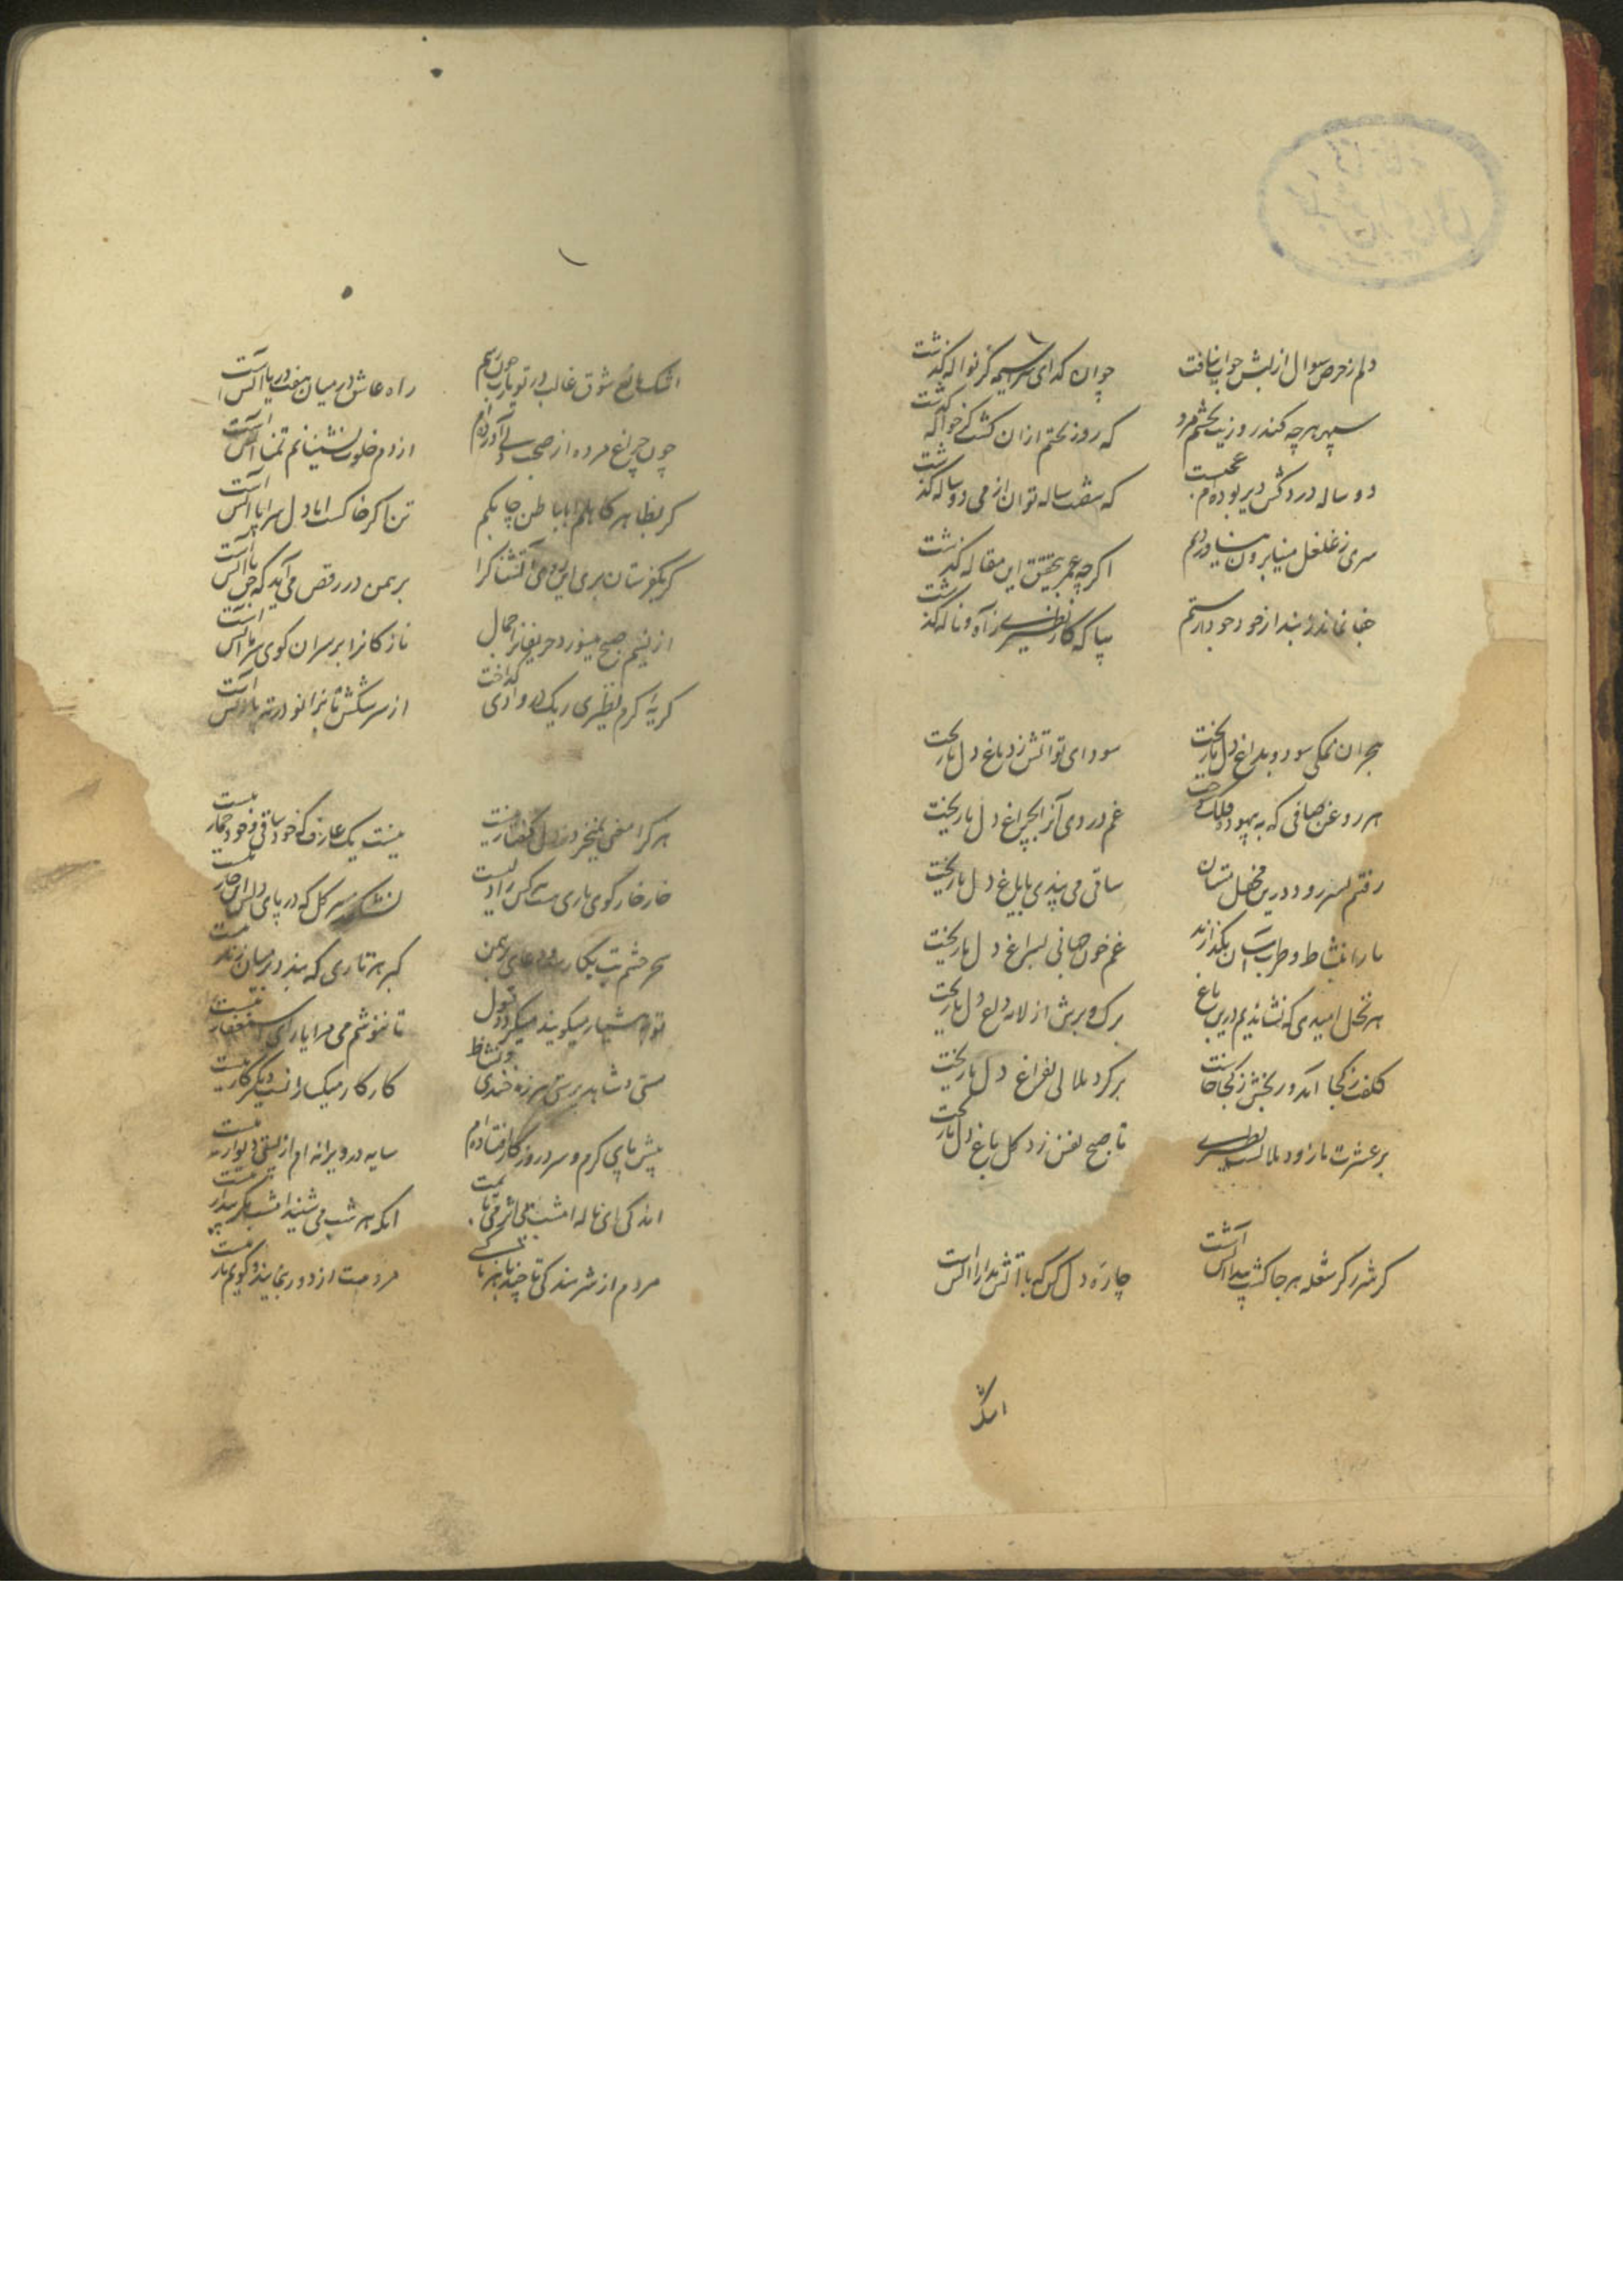 دلم ز حرص سوال از لبش جواب نیافت
چو آن گدای سراسیمه کز نواله گذشت
سپهر هرچه کند روز نیست بختم مرد
که روز بختم ازان گشت کز حواله گذشت
دو ساله دردکش دیر بوده‌ام عمریست
که هفت ساله توان از می دو ساله گذشت
سری ز غلغل مینا برون نیاوردیم
اگرچه عمر بتحقیق این مقاله گذشت
جفا نماند نه بیند از خود خود دار ستم
بیا که کار نظیری ز آه و ناله گذشت
هجران نمکی سود و بداغ دل ما ریخت
سودای تو آتش زد باغ دل ما ریخت
هر روغن صافی که به پیمود فلک ریخت
غم دردی آنرا بچراغ دل ما ریخت
رفتم بسر رود درین محفل مستان
ساقی می پندی بایاغ دل ما ریخت
ما را بنشاط و طرب آسان نگذارند
غم خون جهانی بسراغ دل ما ریخت
هر نخل امیدی که نشاندیم درین باغ
برگ و برش از لاله داغ دل ما ریخت
کلفت ز کجا آمد و رنجش ز کجا خاست
برگرد ملالی بفراغ دل ما ریخت
بر عشرت ما زود ملالست نظیری
تا صبح نفس زد گل باغ دل ما ریخت
گر شرر گر شعله هر جا گشت پیدا آتش است
چاره دل کن که با آتش مدارا آتش است
اشک
اشک مانع شوق غالب در تو یارب چون رسم
راه عاشق در میان هفت دریا آتش است
چون چراغ مرده از صحبت دلی آورده‌ام
از دم خلوت نشینانم تمنا آتش است
گر بظاهر کاهلم اما بباطن چابکم
تن اگر خاکست اما دل سراپا آتش است
گر بگورستان بری این دود آتشناک را
برهمن در رقص می آید که با آتش است
از نسیم صبح میسوزد حریفانرا جمال
نازکانرا بر سر آن کوی سرما آتش است
گریه گرم نظیری ریگ در وادی گداخت
از سر سنگش تا بزانو در ته پا آتش است
هر کرا معنی نخیزد در دل گفتار نیست
نیست یک عارف که خود ساقی و خود خمار نیست
خار خار گوی یاری هست کس را دل نیست
نشکفد بر سر گل که در پای دلش آن خار نیست
سحر چشم بت بیکبار ربود دعای برهمن
گبر هر تاری که بندد بر میان زنار نیست
توبه هشیار میگویند میگردد قبول
تا ننوشم می مرا یارای استغفار نیست
مستی و شاهد پرستی هرزه خندی و نشاط
کار کار میکسارانست دیگر کار نیست
پیش پای گرم و سرد روزگار افتاده‌ام
سایه در ویرانه‌ام از پستی دیوار نیست
اندکی ای ناله امشب بی اثر می یابمت
آنکه هر شب می شنید امشب مگر بیدار نیست
مردم از شرمندگی تا چند با هر ناکسی
مردمت از دور بنمایند و گویم یار نیست